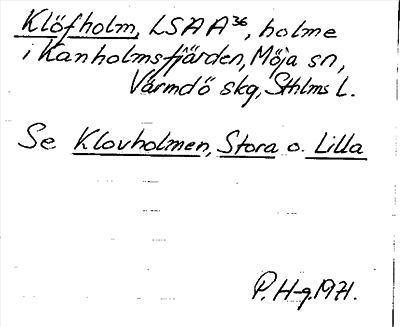 Klöfholm, LSAA³⁶, holme
i Kanholmsfjärden, Möja sn,
Värmdö skg, Sthlms L.
Se Klovholmen, Stora o. Lilla
P. H-g. 1971.